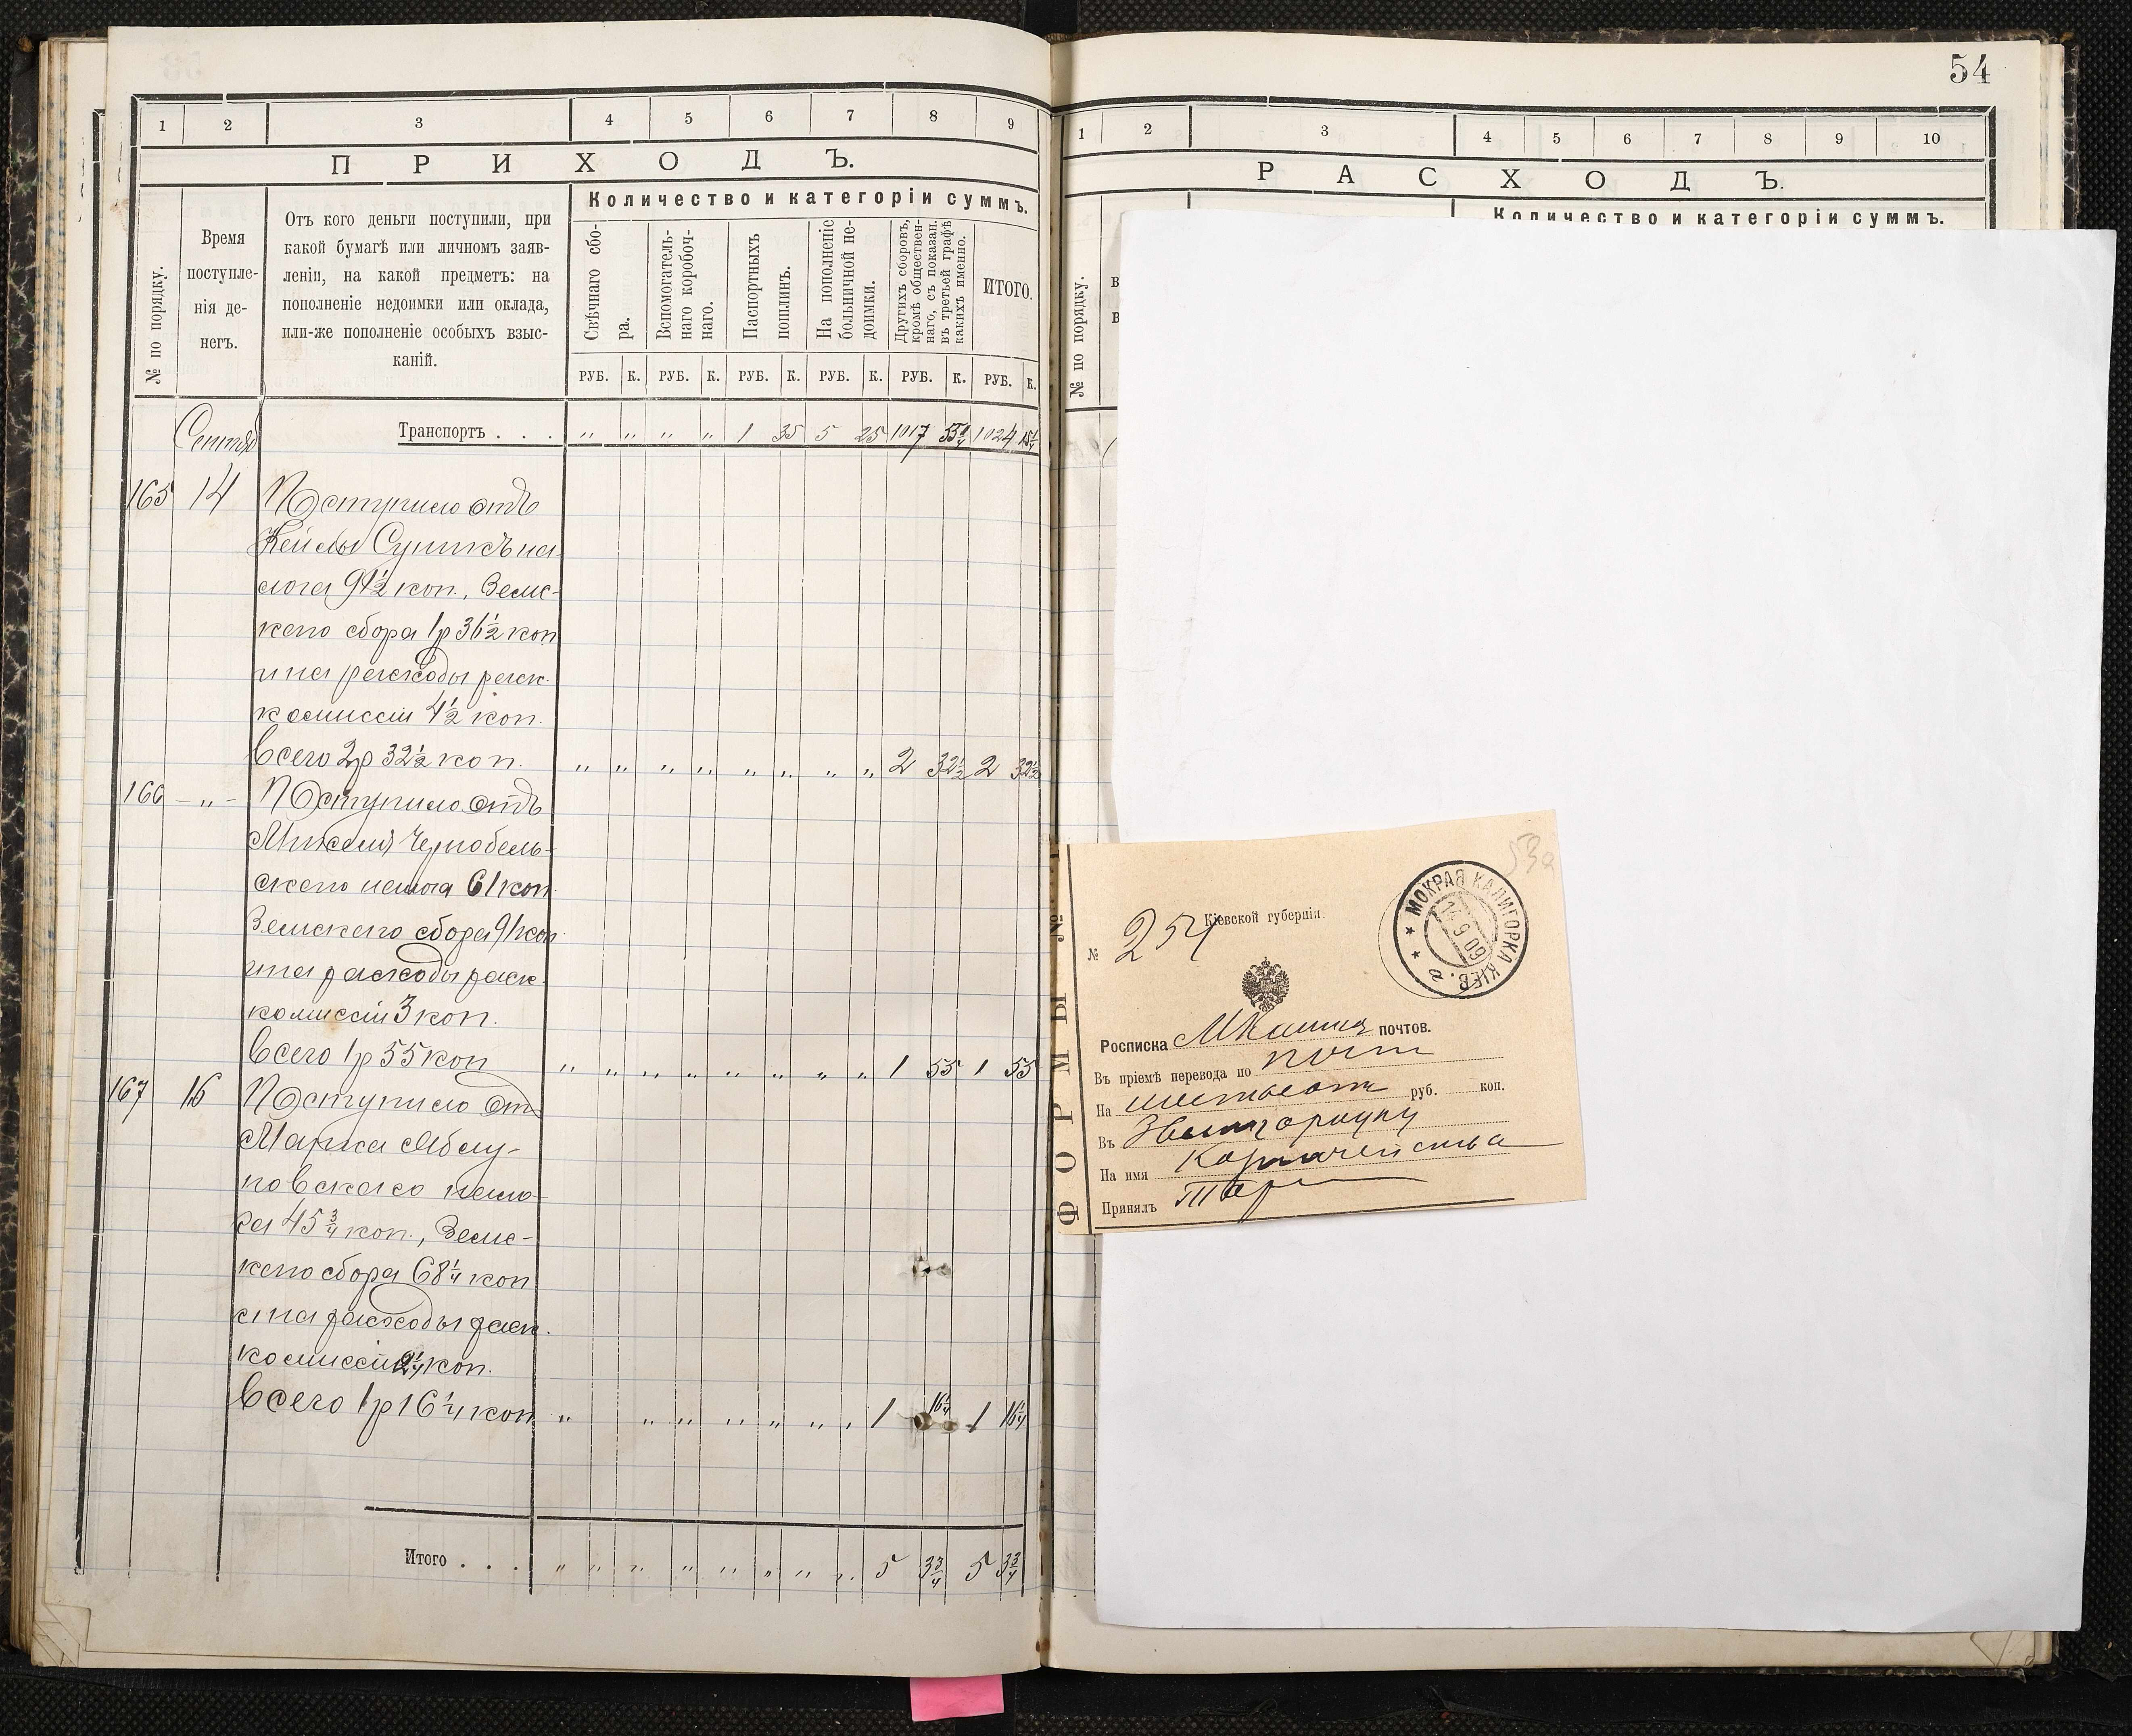 54
1 2 3 4 5 6 7 8 9
ПРИХОДЪ.
Количество и категоріи суммъ.
№ по порядку.
Время
поступле-
нія де-
негъ.
Отъ кого деньги поступили, при
какой бумагѣ или личномъ заяв-
леніи, на какой предметъ: на
пополненіе недоимки или оклада,
или-же пополненіе особыхъ взыс-
каній.
Свѣчнаго сбо-
ра.
Вспомогатель-
наго коробоч-
наго.
Паспортныхъ
пошлинъ.
На пополненіе
больничной не-
доимки.
Другихъ сборовъ,
кромѣ обществен-
наго, съ показан.
въ третьей графѣ
какихъ именно.
ИТОГО.
РУБ. К. РУБ. К. РУБ. К. РУБ. К. РУБ. К. РУБ. К.
Сентяб
Транспортъ . . . „ „ „ „ 1 35 5 25 1017 55¼ 1024 15¼
165 14 Поступило отъ
Кейлы Супикъ на-
лога 91½ коп., Земс-
каго сбора 1р 36½ коп
и на расходы раск.
комиссіи 4½ коп.
Всего 2р 32½ коп. „ „ „ „ „ „ „ „ 2 32½ 2 32½
166 - „ - Поступило отъ
Михеля Чернобель-
скаго налога 61 коп.
Земскаго сбора 91 коп.
и на расходы раск.
комиссіи 3 коп.
Всего 1р 55 коп „ „ „ „ „ „ „ „ 1 55 1 55
167 16 Поступило отъ
Марка
новскаго нало-
га 45¾ коп., Земс-
каго сбора 68¼ коп
и на расходы раск.
комиссіи 2¼ коп.
Всего 1р 16¼ коп „ „ „ „ „ „ „ 1 16¼ 1 16¼
Итого . . . „ „ „ „ „ „ „ „ 5 3¾ 5 3¾
1 2 3 4 5 6 7 8 9 10
РАСХОДЪ.
Количество и категоріи суммъ.
№ по порядку.
В
В
53а
ФОРМЫ №
Кіевской губерніи
№ 254
МОКРАЯ КАЛИГОРКА КІЕВ. Г.
14 9 09
Росписка почтов.
Въ пріемѣ перевода по почт
На шестьсот руб. коп.
Въ Звенигородку
На имя Казначейства
Принялъ